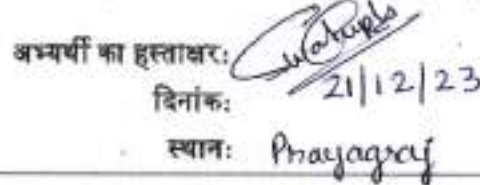 अभ्यर्थी का हस्ताक्षर:
दिनांक: 21/12/23
स्थान: Prayagraj